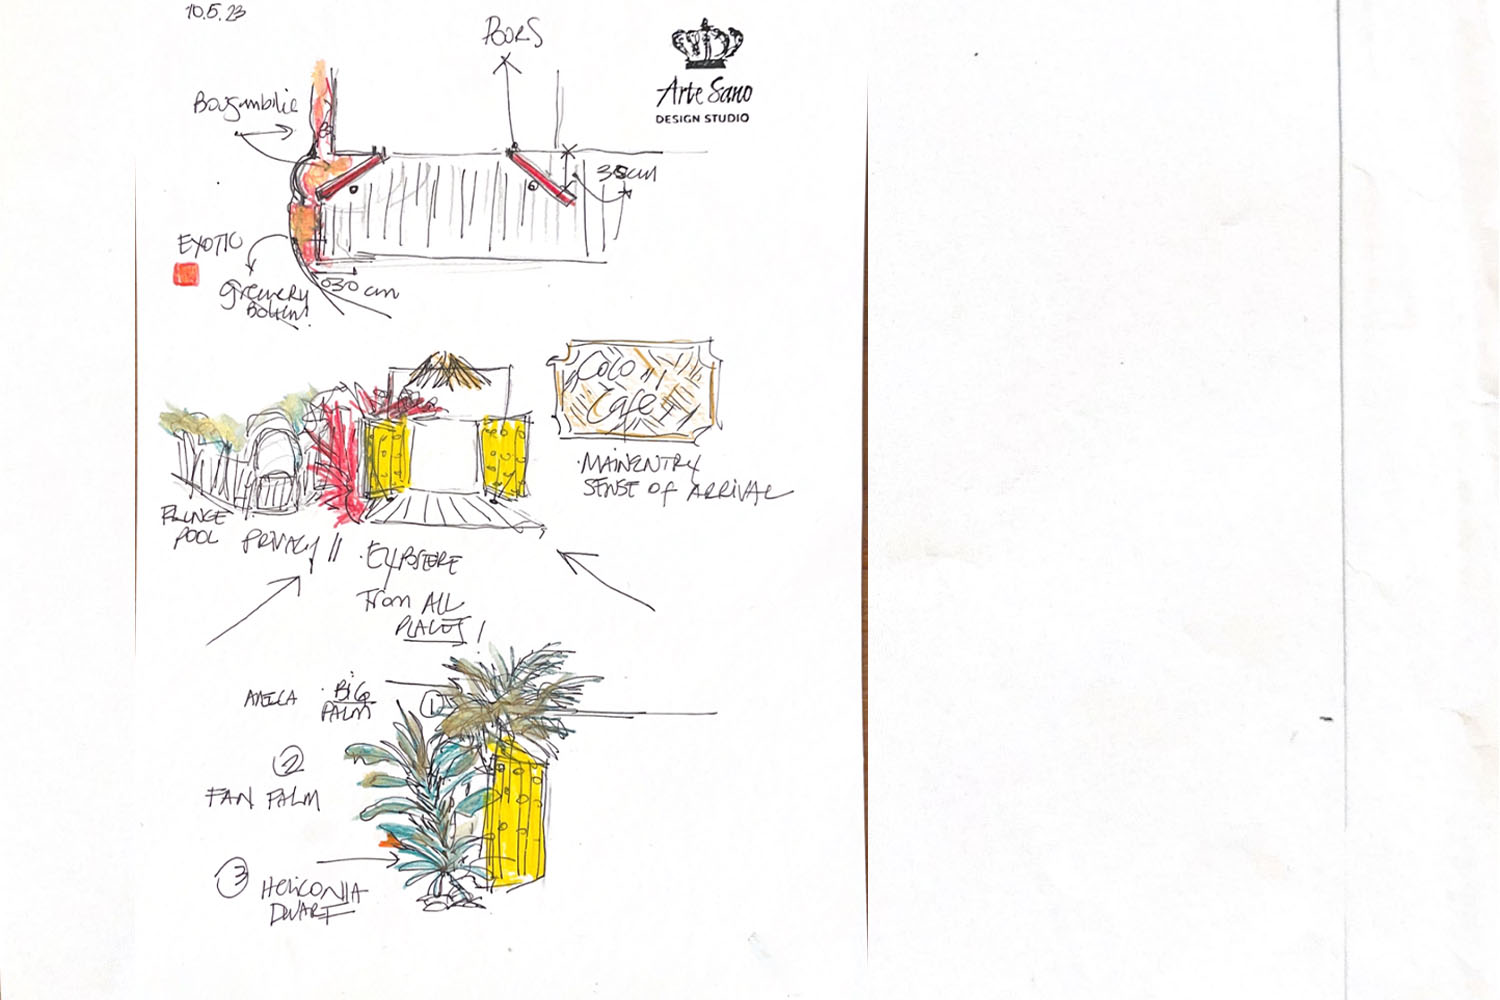 10.5.23
DOORS
Arte Sano
DESIGN STUDIO
Bougambilie
35cm
EXOTIC
greenery
030 cm
Coco
Cafe
MAIN ENTRY
SENSE OF ARRIVAL
PLUNGE
POOL
PRIVACY !!
From ALL
PLACES!
BIG
PALM
1
2
FAN PALM
3
HELICONIA
DWARF